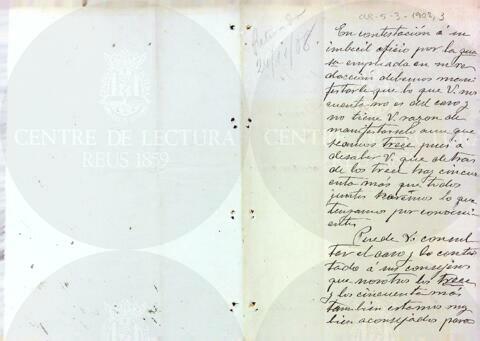 CUS-5-3-1902,3
24/11/08.
CENTRE DE LECTURA
REUS 1859
CENTRE DE LECTURA
REUS 1859
En contestación á su
imbecil oficio por la que
empleada en su re
dacción debemos mani
festarle que lo que V. nos
cuenta no es del caso y
no tiene V. razon de
manifestarselo aun que
seamos trece pues á
de saber V. que detras
de los trece hay cincu
enta más que todos
juntos haremos lo que
tengamos por conveni
ente.
Puede V. consul
tar el caso y lo contes
tado á sus consejeros
que nosotros los trece
y los cincuenta más
tambien estamos muy
bien aconsejados para